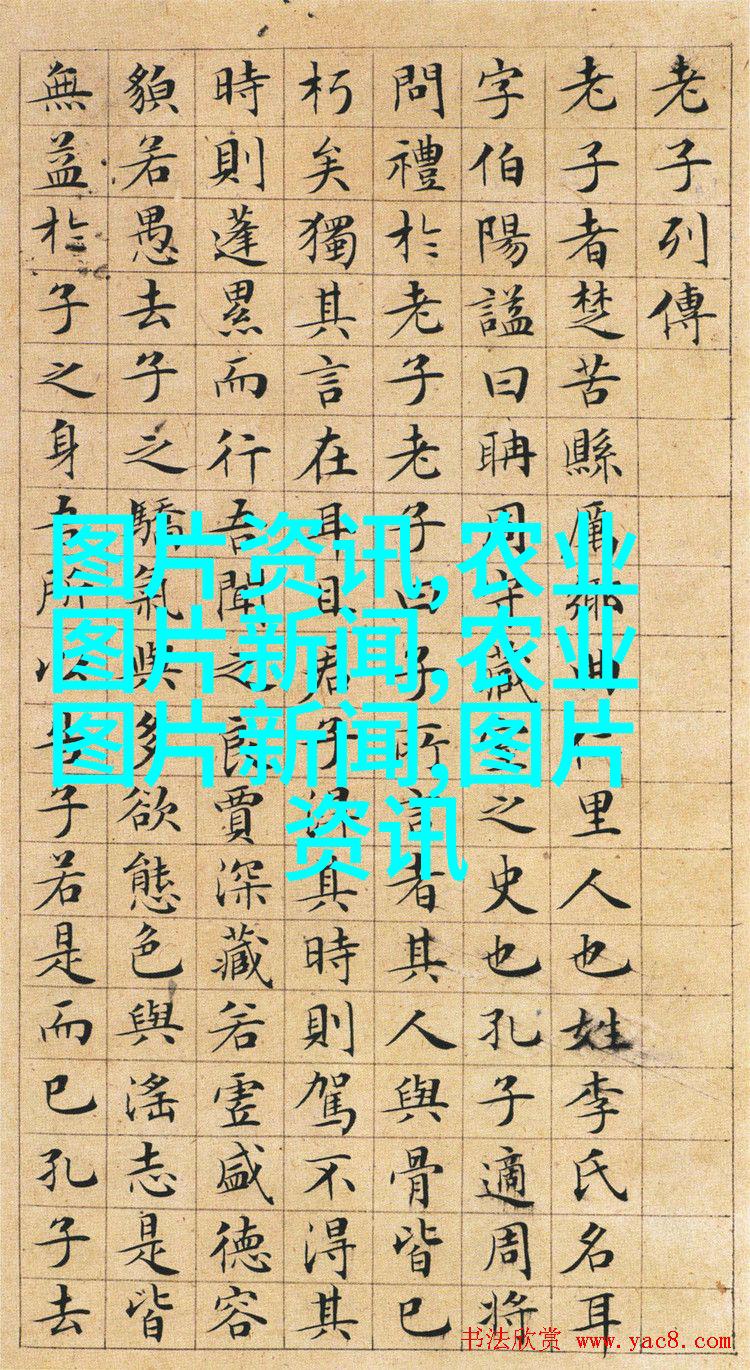 老子列傳
老子者楚苦縣厲鄉曲仁里人也姓李氏名耳
字伯陽謚曰聃周守藏室之史也孔子適周將
問禮於老子老子曰子所言者其人與骨皆已
朽矣獨其言在耳且君子得其時則駕不得其
時則蓬累而行吾聞之良賈深藏若虛盛德容
貌若愚去子之驕氣與多欲態色與淫志是皆
無益於子之身吾所以告子若是而已孔子去
图片资讯,农业
图片新闻,农业
图片新闻,图片
资讯
书法欣赏 www.yac8.com